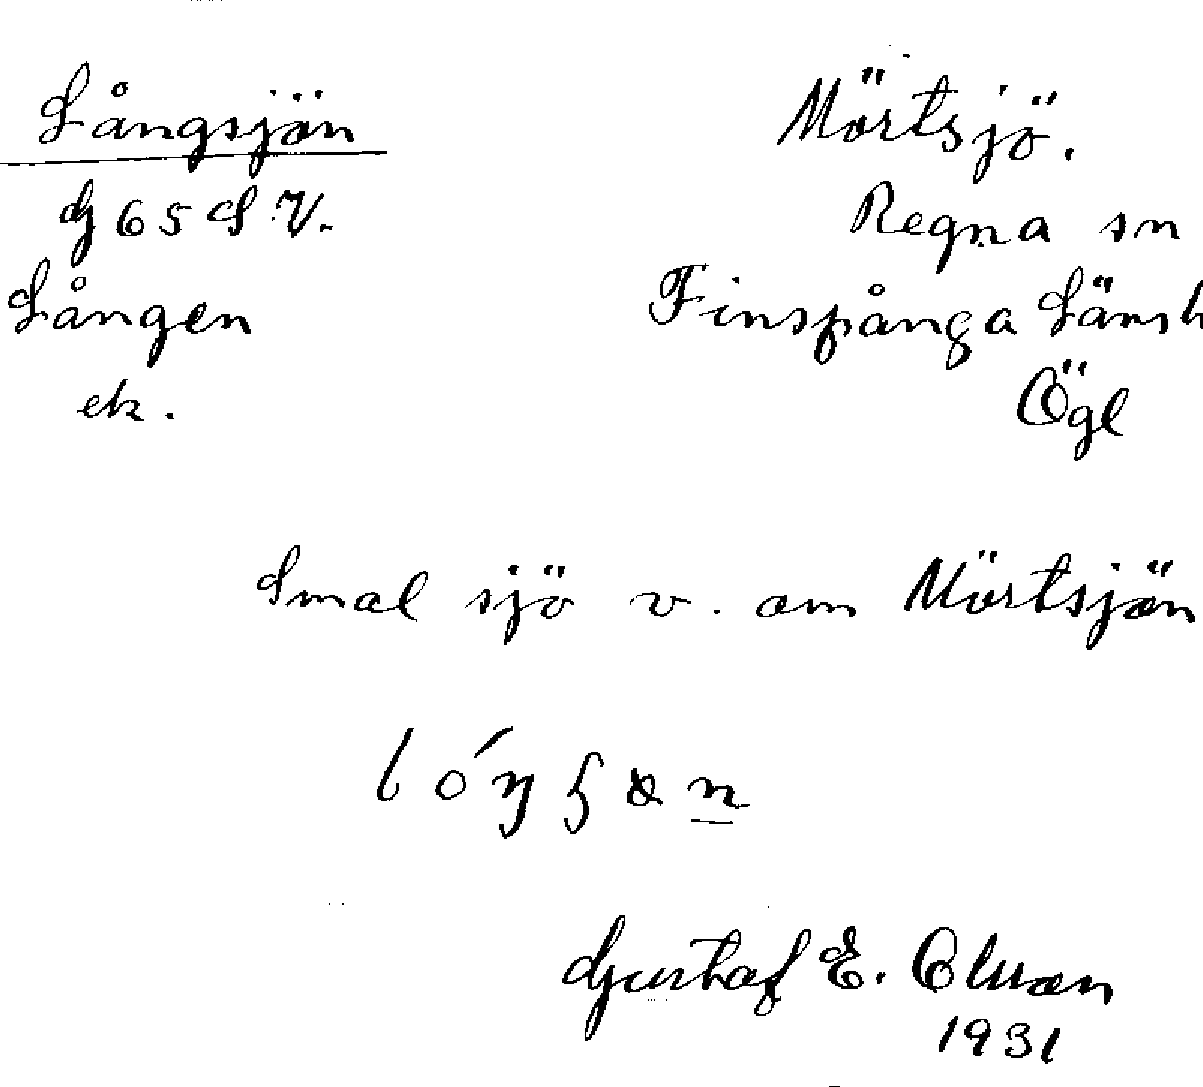 Långsjön
G 65 S V.
Lången
ek.
Mörtsjö.
Regna sn
Finspånga Länsh
Ögl
Smal sjö v. om Mörtsjön
Gustaf E. Olsson
1931